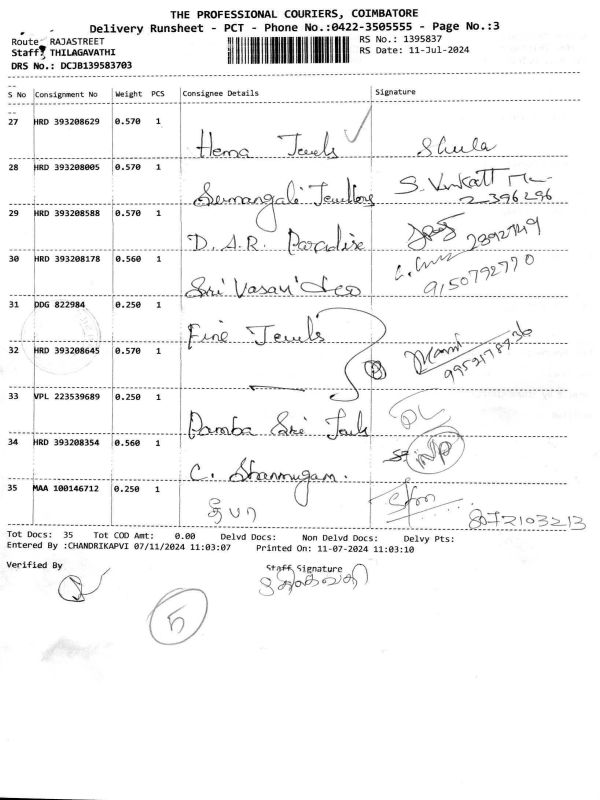 THE PROFESSIONAL COURIERS, COIMBATORE
Delivery Runsheet - PCT - Phone No.:0422-3505555 - Page No.:3
Route: RAJASTREET
RS No.: 1395837
Staff: THILAGAVATHI
RS Date: 11-Jul-2024
DRS No.: DCJB139583703
S No Consignment No Weight PCS Consignee Details Signature
27 HRD 393208629 0.570 1
Hema Jewels Shula
28 HRD 393208005 0.570 1
Sumangali Jewellery S. 2396296
29 HRD 393208588 0.570 1
D.A.R. Paradise 2892749
30 HRD 393208178 0.560 1
Sri Vasavi 9150792770
31 DDG 822984 0.250 1
Fine Jewels
32 HRD 393208645 0.570 1
33 VPL 223539689 0.250 1
Pamba Sri
34 HRD 393208354 0.560 1
C. Shanmugam.
35 MAA 100146712 0.250 1
தீபா 8072103213
Tot Docs: 35 Tot COD Amt: 0.00 Delvd Docs: Non Delvd Docs: Delvy Pts:
Entered By :CHANDRIKAPVI 07/11/2024 11:03:07 Printed On: 11-07-2024 11:03:10
Verified By Staff Signature